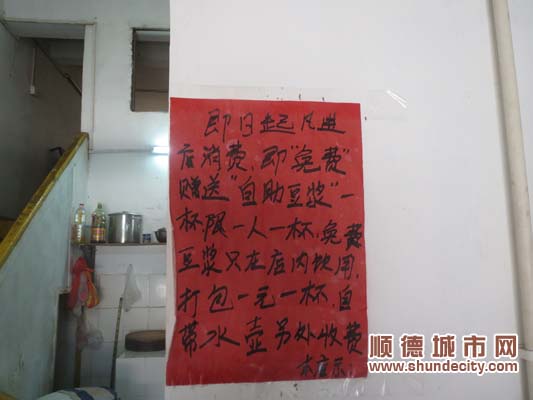 即日起凡进
店消费,即"免费"
赠送"自助豆浆"一
杯限一人一杯,免费
豆浆只在店内饮用,
打包一元一杯,自
带水壶另处收费
顺德城市网
www.shundecity.com